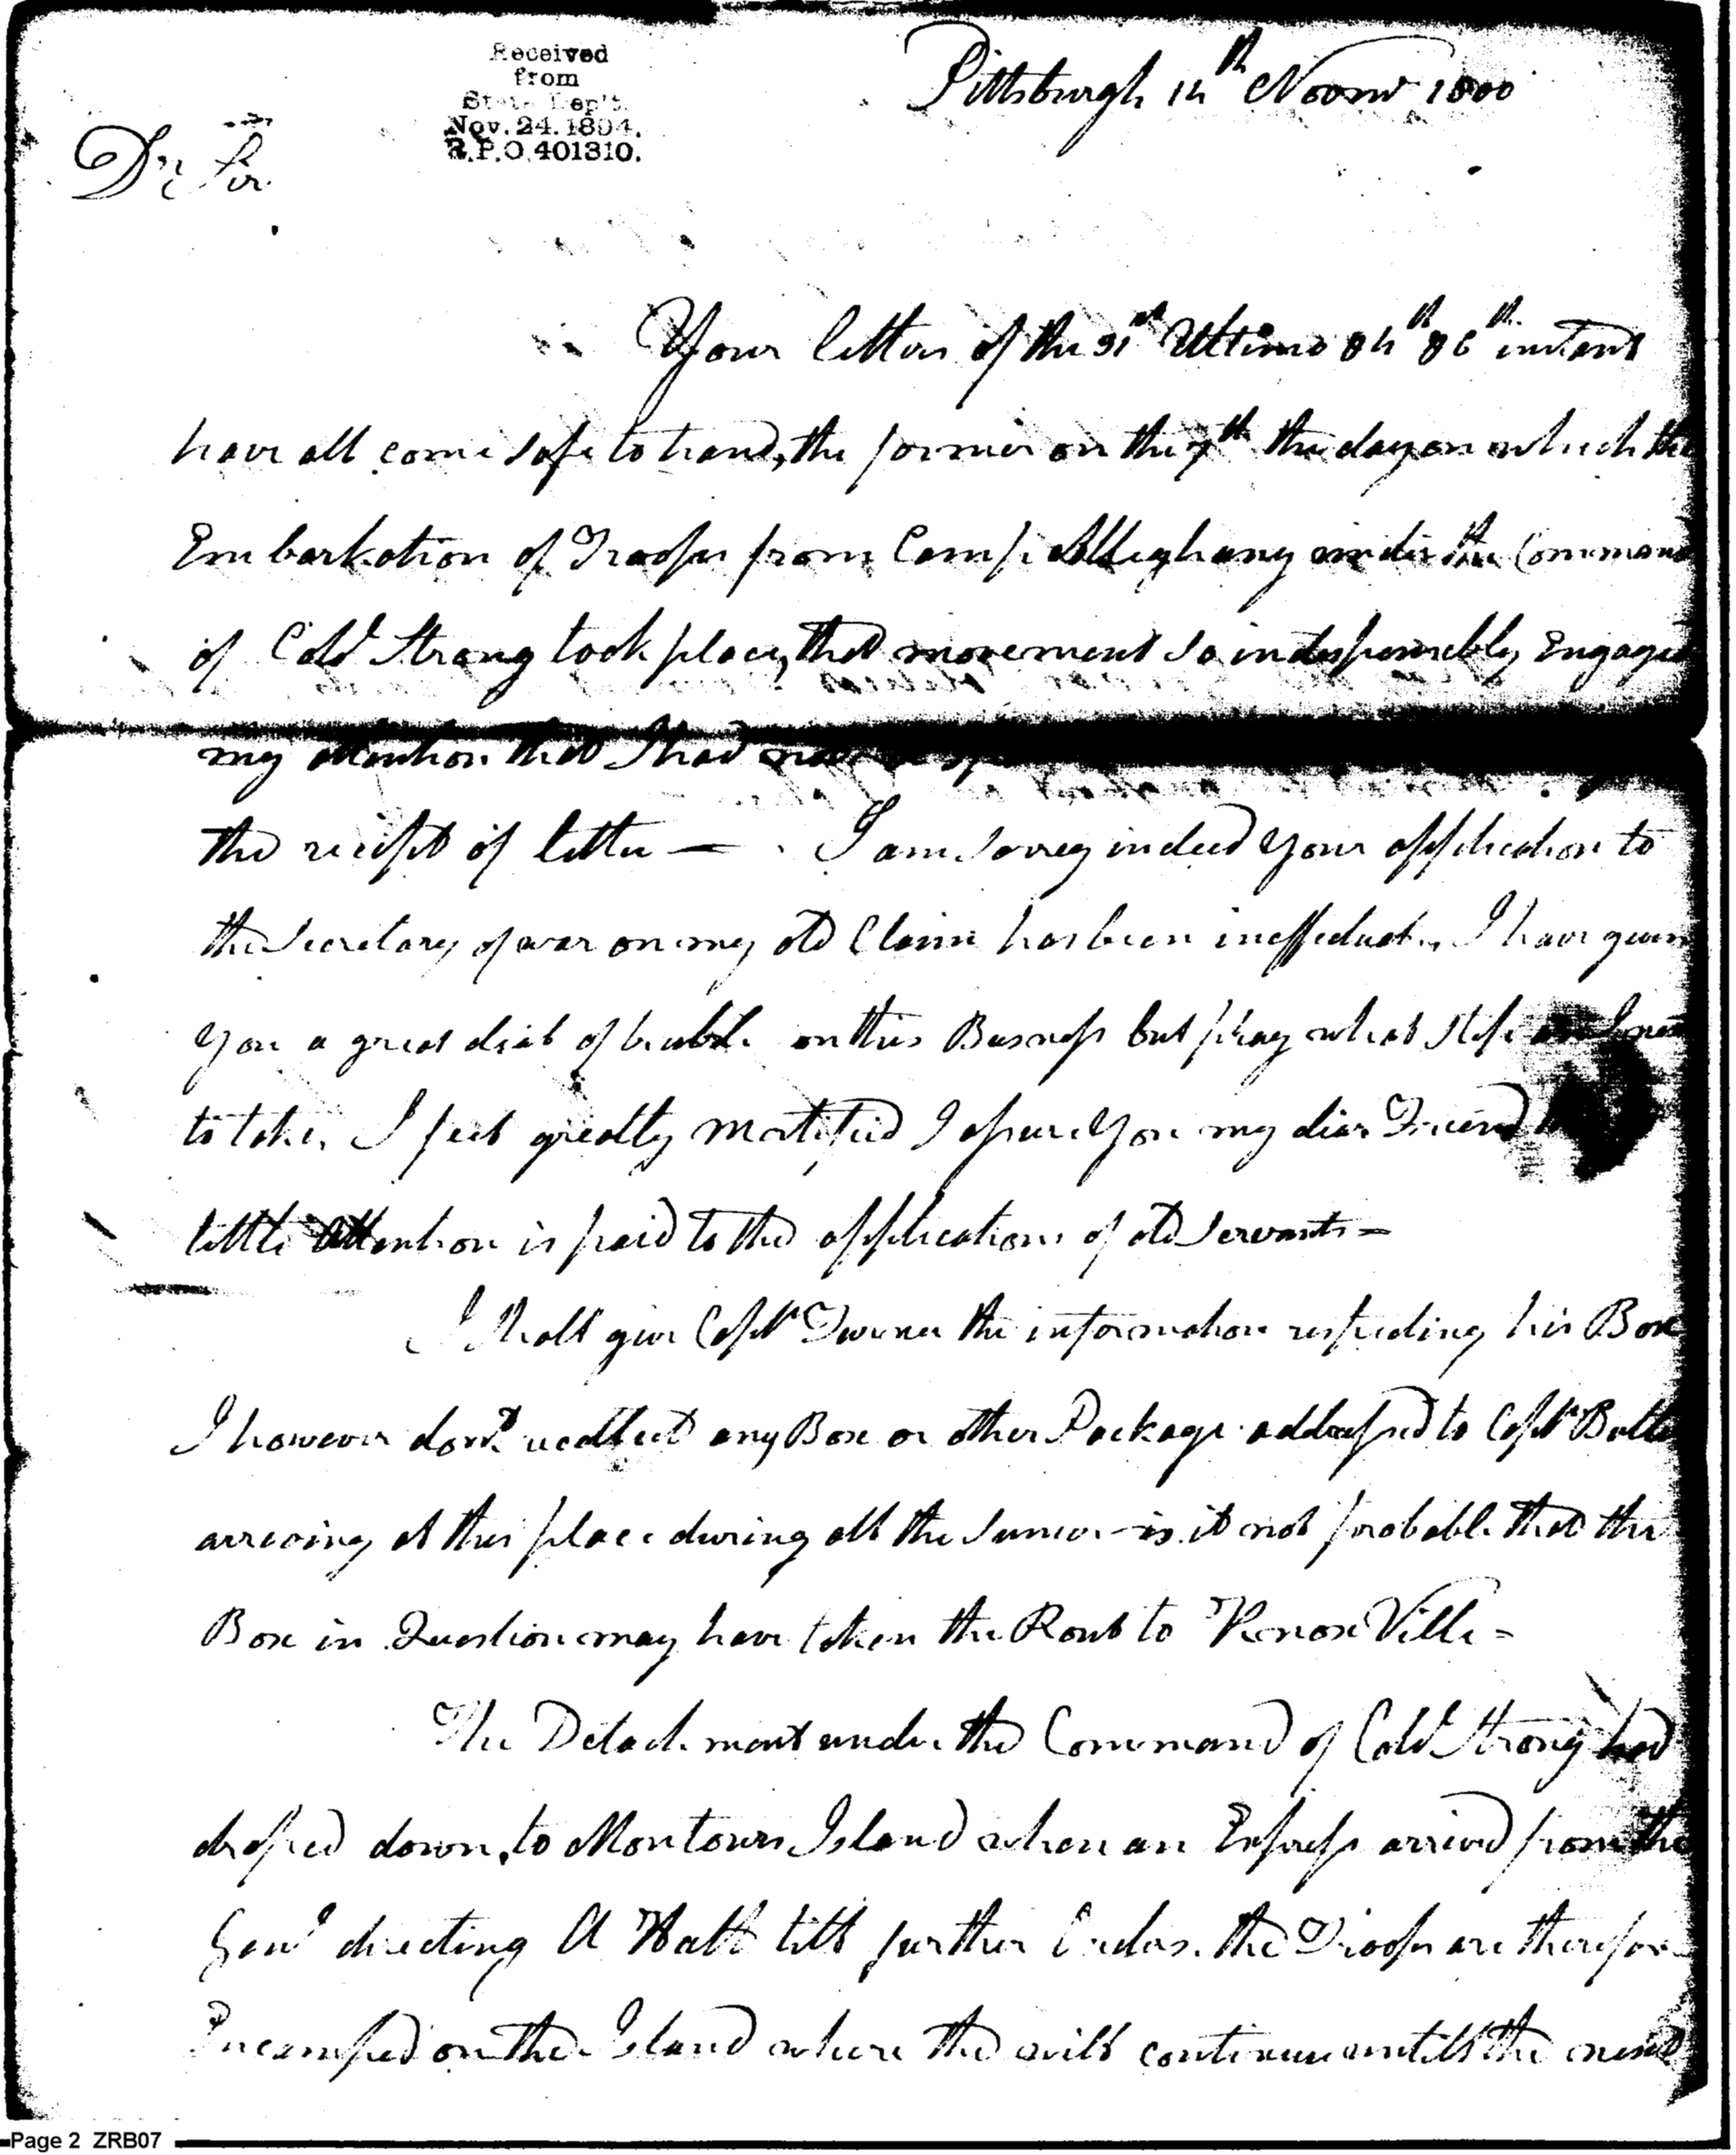 Received
from
State Dep't.
Nov. 24. 1894.
R.P.O. 401310.
Pittsburgh 14th Novmr 1800
Dr Sir
Your letters of the 31st Ultimo & 4th & 6th instant
have all come safe to hand, the former on the 7th the day on which the
Embarkation of Troops from Camp Alleghany under the Command
of Colo. Strong took place, that movement so indispensably Engaged
my attention that I had
the receipt of letter — I am sorrey indeed your application to
the Secretary of war on my old Claim has been ineffectual. I have given
you a great deal of trouble on this Busness but pray what step
to take, I feel greatly mortified I assure you my dear Friend
little attention is paid to the applications of old Servants —
I shall give Capt. Turner the information respecting his Box
I however dont recollect any Box or other Package addressed to Capt. Butler
arriving at this place during all the Sumer - is it not probable that the
Box in Question may have taken the Rout to Knox Ville =
The Detachment under the Command of Colo. Strong had
droped down, to Montours Island when an Express arrived from the
Genl directing A Halt till further Orders. the Troops are therefore
Encamped on the Island where the will continue untill the
Page 2 ZRB07